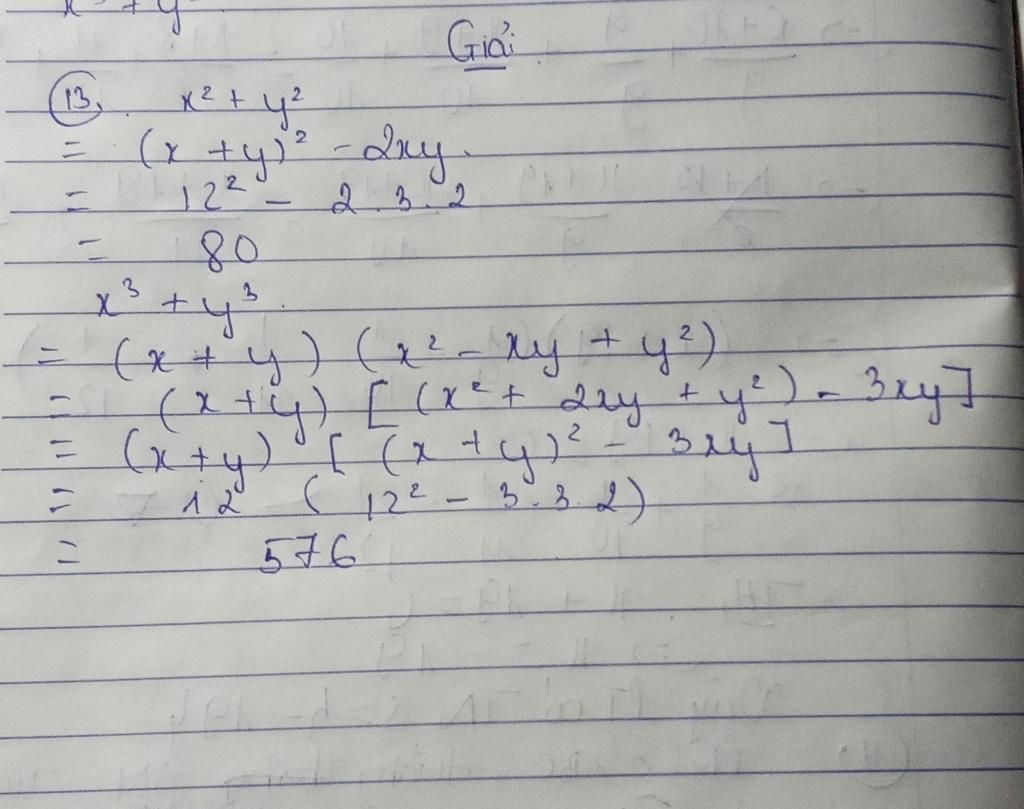 x³ + y³
Giải
13, x² + y²
= (x + y)² - 2xy.
= 12² - 2.3.2
= 80
x³ + y³.
= (x + y) (x² - xy + y²)
= (x + y) [ (x² + 2xy + y²) - 3xy ]
= (x + y) [ (x + y)² - 3xy ]
= 12 ( 12² - 3.3.2)
= 576